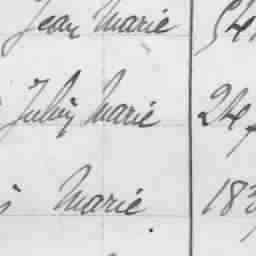 Jean Marie 54
Julien Marie 24
Marie 183